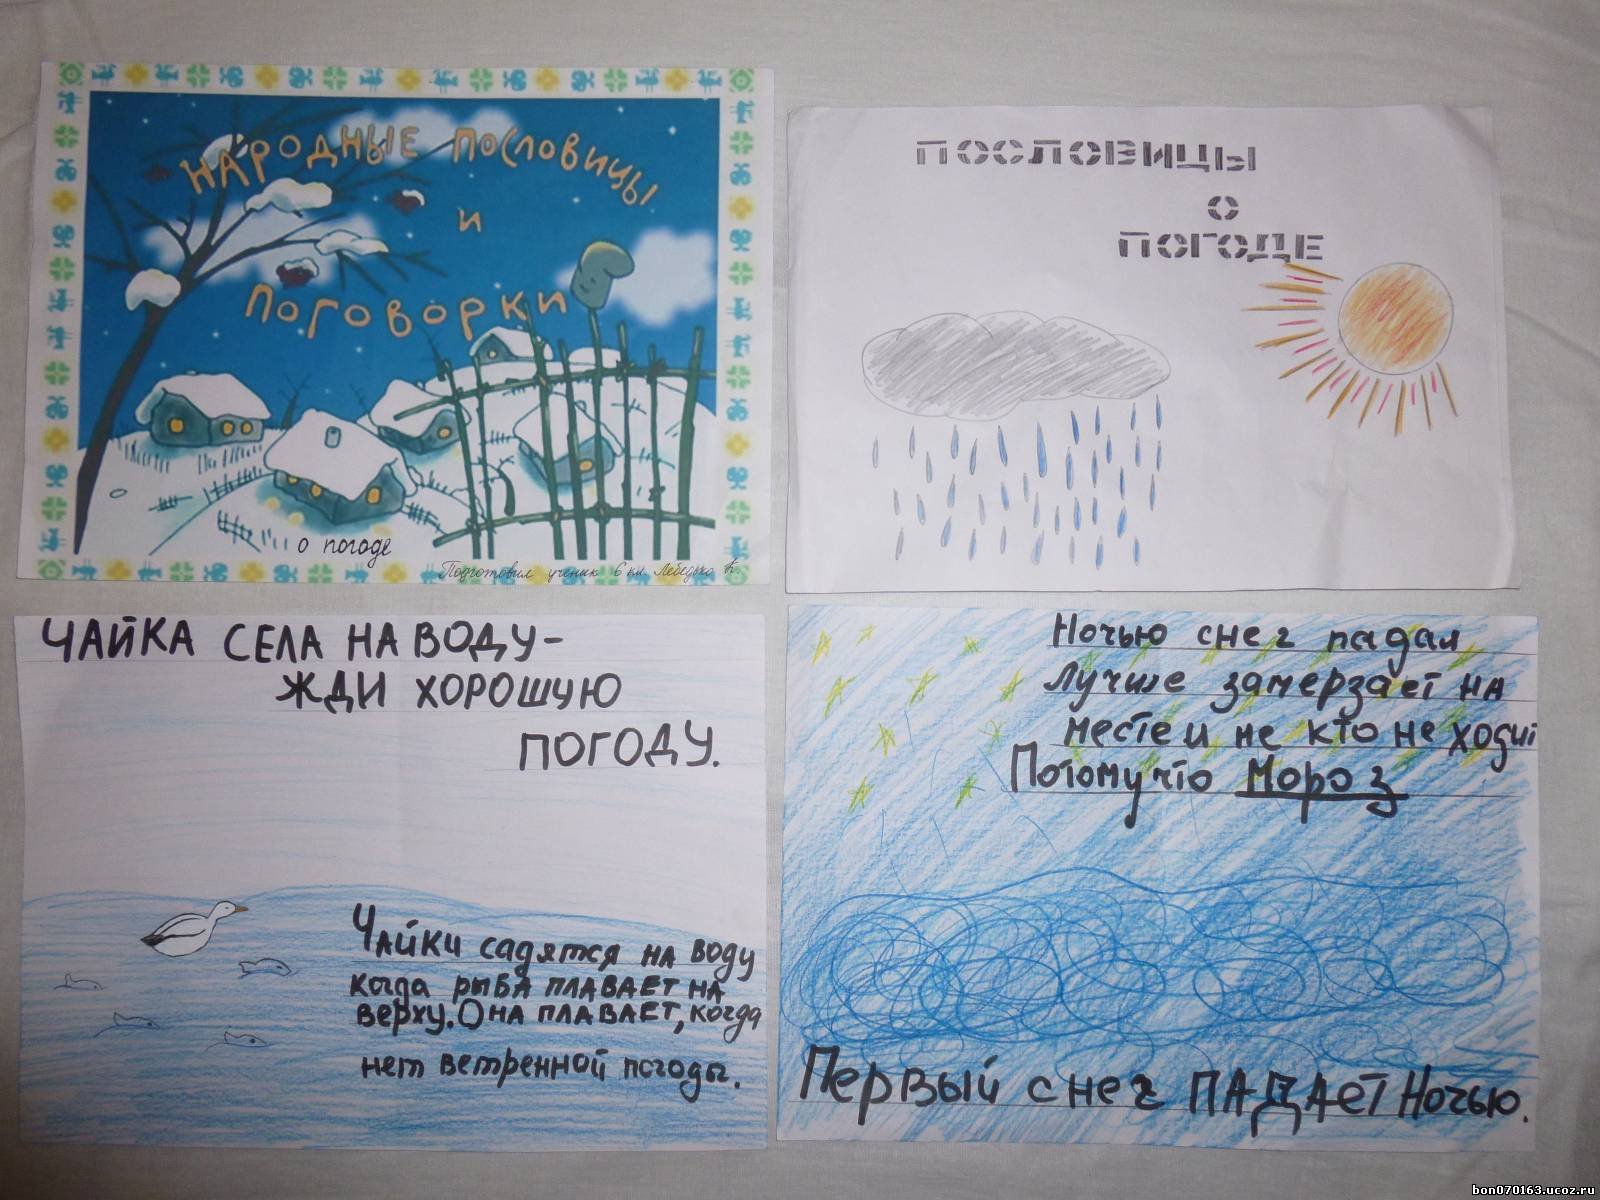 НАРОДНЫЕ ПОСЛОВИЦЫ
и
ПОГОВОРКИ
о погоде
Подготовил ученик 6 кл. Лебедько К
ПОСЛОВИЦЫ
О
ПОГОДЕ
ЧАЙКА СЕЛА НА ВОДУ-
ЖДИ ХОРОШУЮ
ПОГОДУ.
Чайки садятся на воду
когда рыба плавает на
верху. Она плавает, когда
нет ветренной погоды.
Ночью снег падал
Лучше замерзает на
месте и не кто не ходит
Потому что Мороз
Первый снег ПАДАЕТ Ночью.
bon070163.ucoz.ru